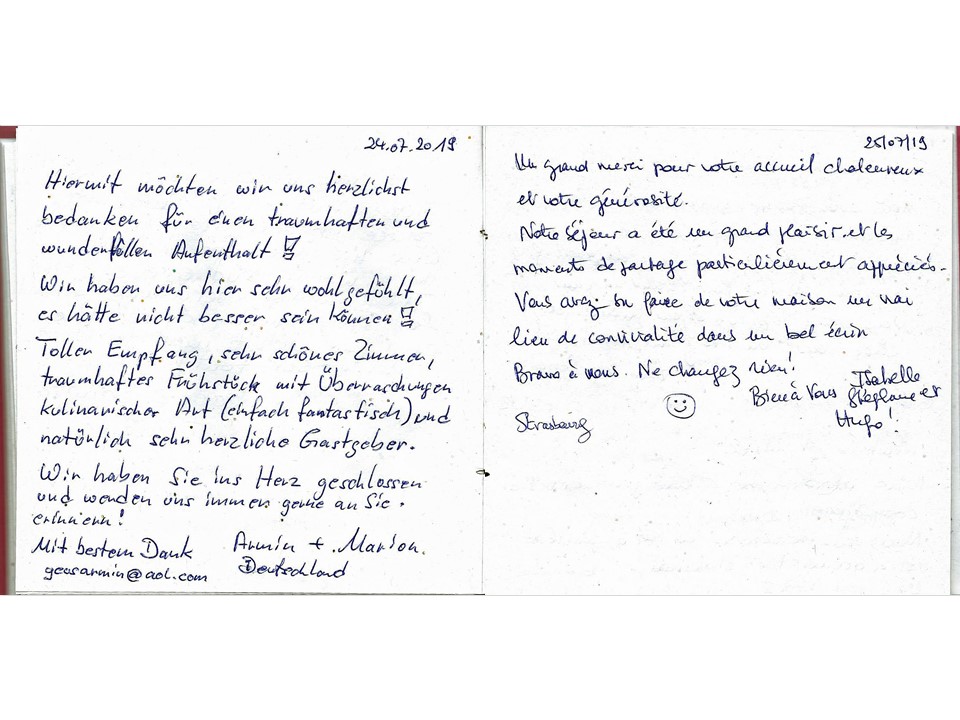 24.07.2019
Hiermit möchten wir uns herzlichst
bedanken für einen traumhaften und
wundervollen Aufenthalt !
Wir haben uns hier sehr wohl gefühlt,
es hätte nicht besser sein können !
Toller Empfang, sehr schönes Zimmer,
traumhaftes Frühstück mit Überraschungen
kulinarischer Art (einfach fantastisch) und
natürlich sehr herzliche Gastgeber.
Wir haben Sie ins Herz geschlossen
und werden uns immer gerne an Sie
erinnern!
Mit bestem Dank Armin + Marion
geosarmin@aol.com Deutschland
25/07/19
Un grand merci pour votre accueil chaleureux
et votre générosité.
Notre séjour a été un grand plaisir et les
moments de partage particulièrement appréciés.
Vous avez su faire de votre maison un vrai
lieu de convivialité dans un bel écrin
Bravo à vous. Ne changez rien!
Bien à Vous Isabelle
Stéphane et
Hugo!
Strasbourg